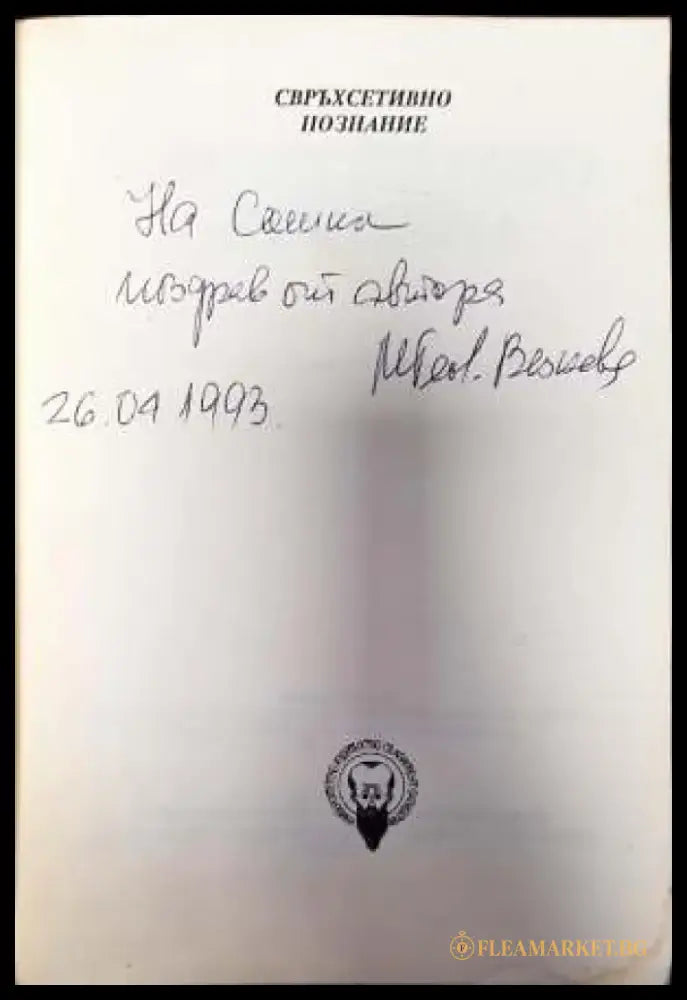 СВРЪХСЕТИВНО
ПОЗНАНИЕ
На Сашка
поздрав от автора
26.04 1993.
FLEAMARKET.BG